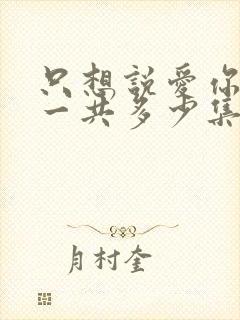 只想説愛你
一共多少集
月村奎